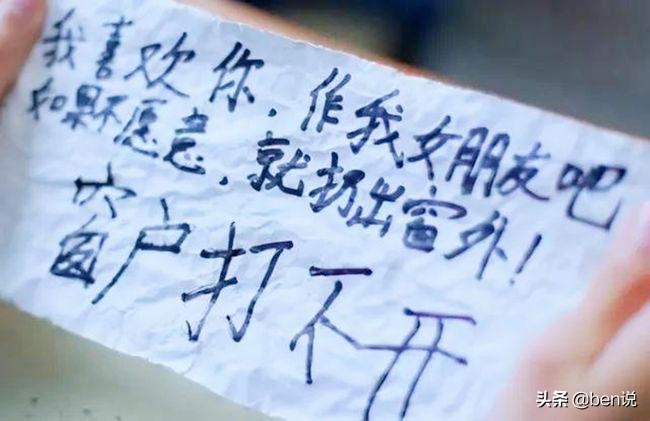 我喜欢你，作我女朋友吧
如果不愿意，就扔出窗外！
窗户打不开
头条 @ben说